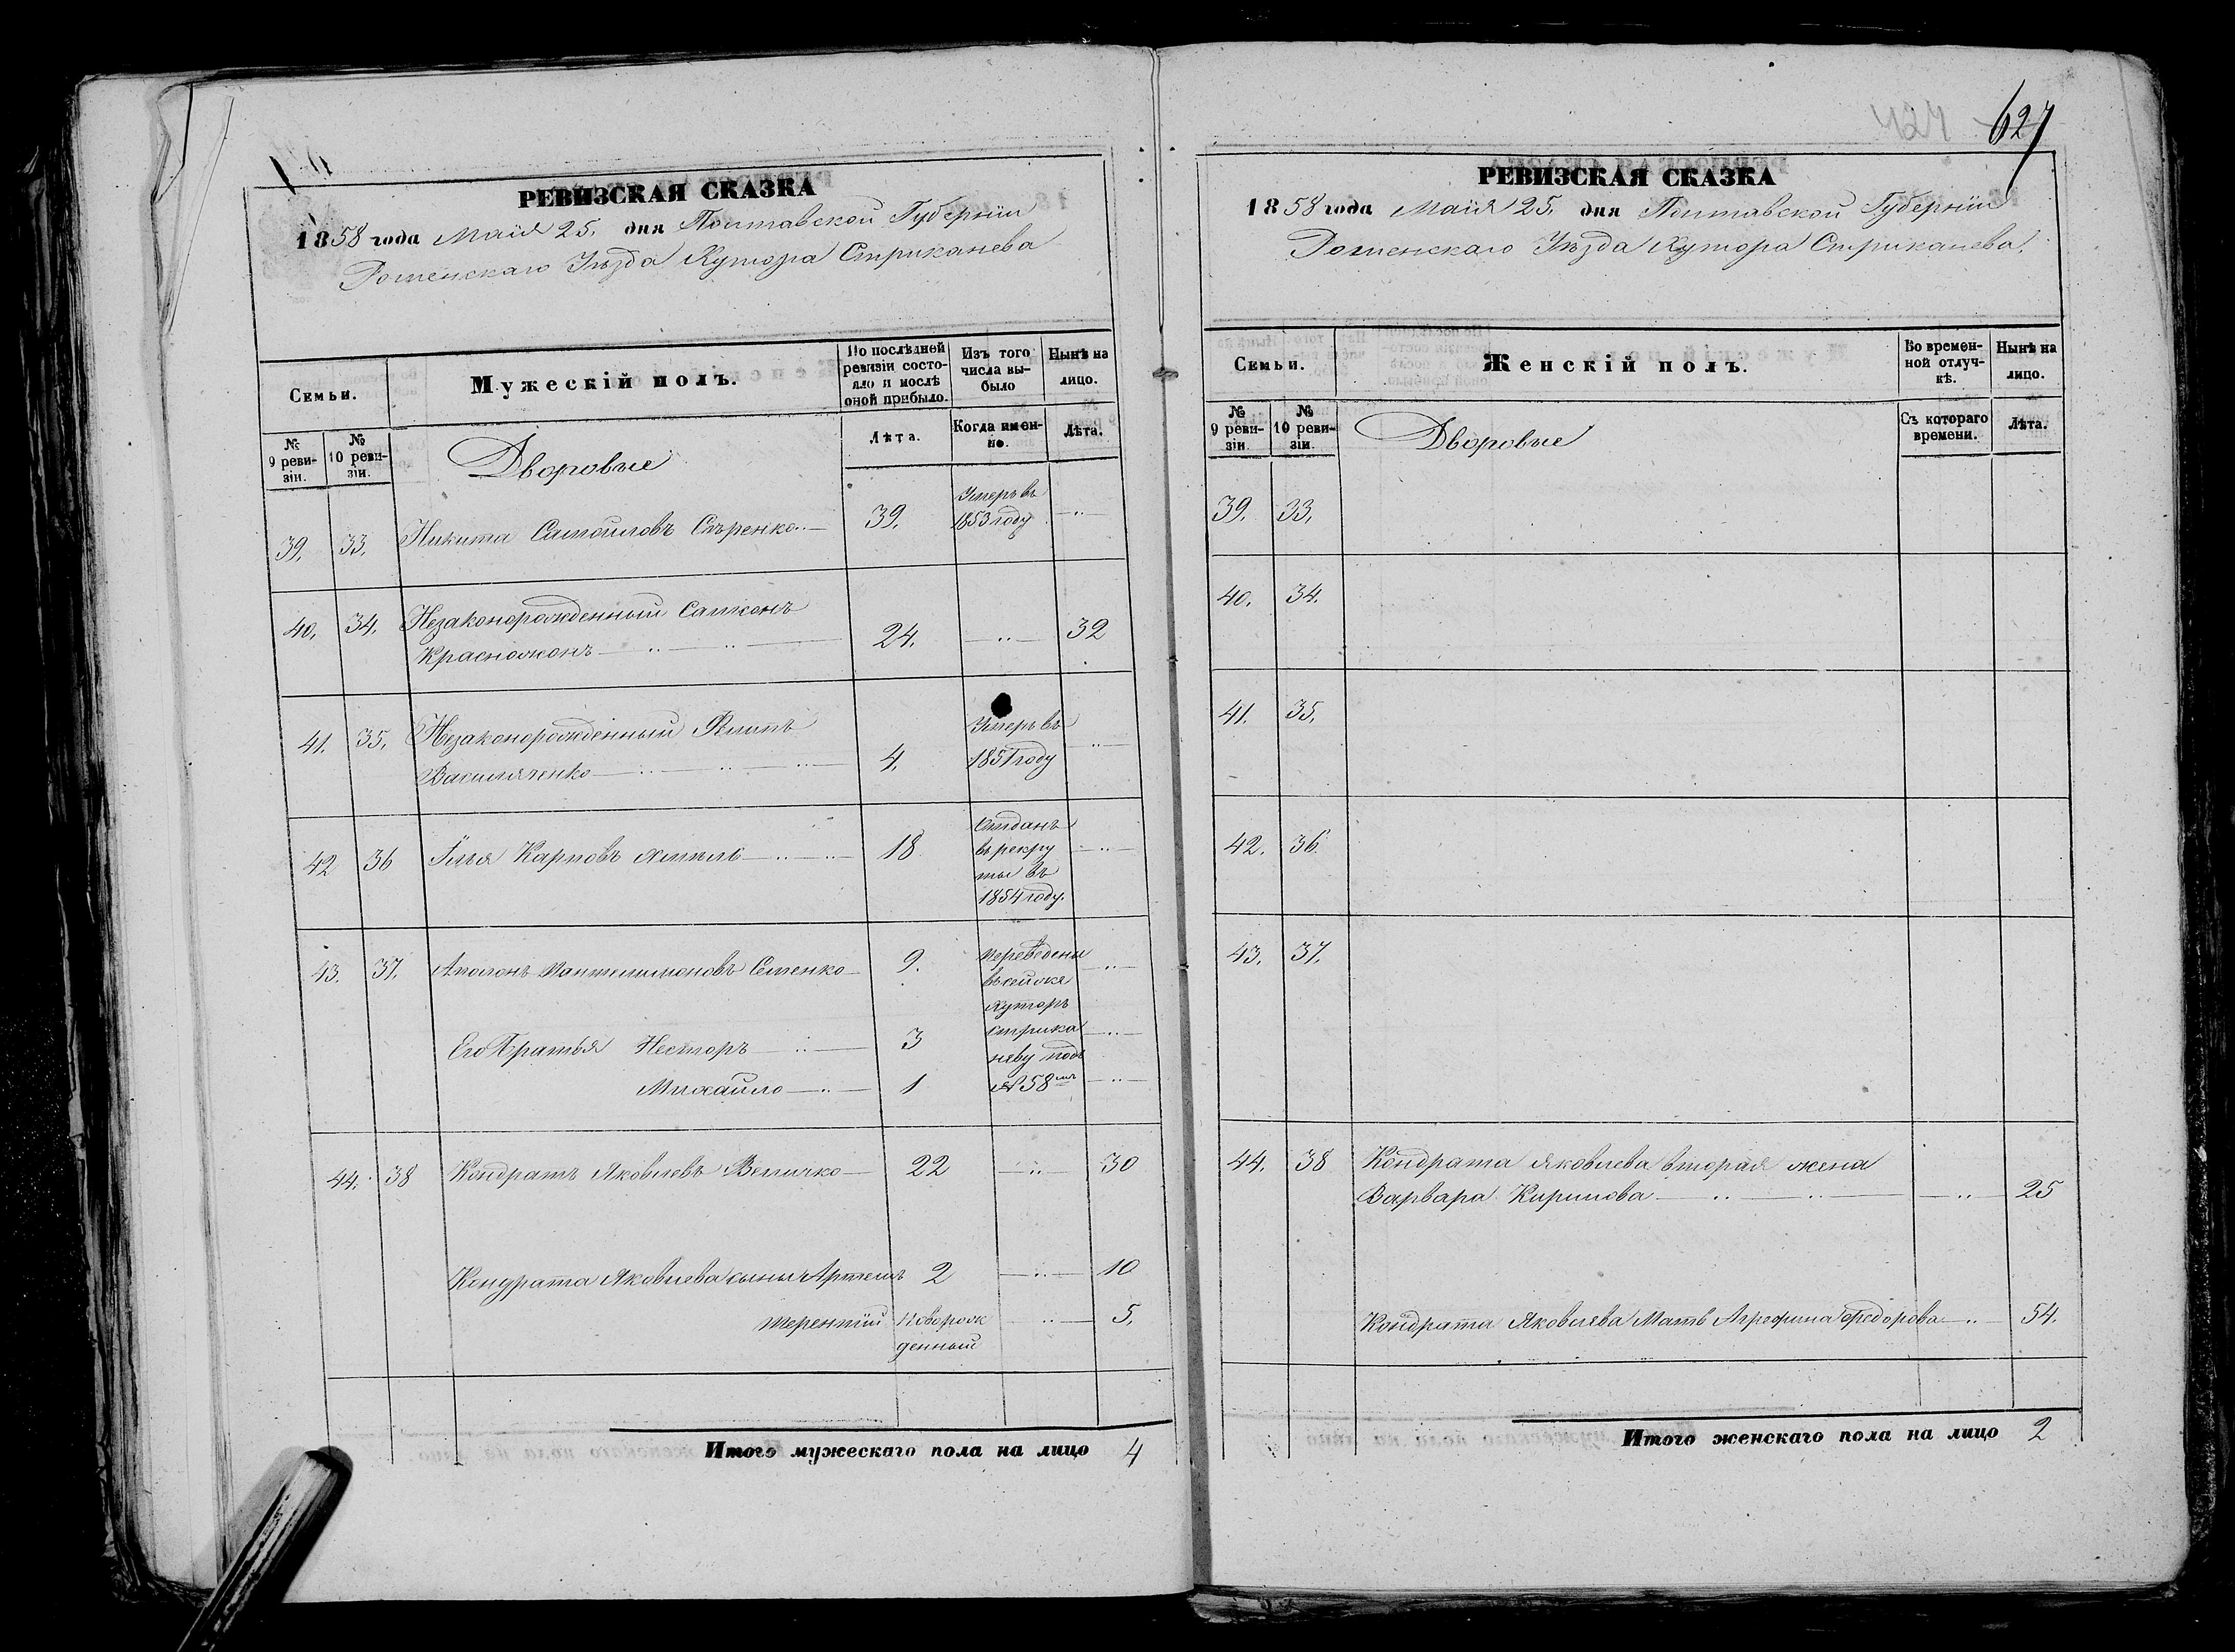 РЕВИЗСКАЯ СКАЗКА
1858 года Маія 25. дня Полтавской Губерніи
Роменскаго Уѣзда Хутора Стриканева
Семьи.
Мужескій полъ.
По послѣдней ревизіи состояло и послѣ оной прибыло.
Изъ того числа выбыло
Нынѣ на лицо.
№ 9 ревизіи.
№ 10 ревизіи.
Дворовые
Лѣта.
Когда именно.
Лѣта.
39. 33. Никита Самойловъ Сѣренко 39. Умеръ въ 1853 году
40. 34. Незаконорожденный Самсонъ
Красножонъ 24. 32
41. 35. Незаконорожденный Филипъ
Василяченко 4. Умеръ въ 1851 году
42 36 Илья Карповъ Хмиль 18 Отданъ
въ рекру
ты въ
1854 году.
43. 37. Аполонъ Пантелимоновъ Семенко 9. переведены
въ сей же
хуторъ
Его Братья Несторъ 3 Стрика
неву подъ
Михайло 1 № 58мъ
44. 38 Кондратъ Яковлевъ Величко 22 30
Кондрата Яковлева сыны Артемъ 2 10
Терентій Новорож
денный 5.
Итого мужескаго пола на лицо 4
627
РЕВИЗСКАЯ СКАЗКА
1858 года Маія 25. дня Полтавской Губерніи
Роменскаго Уѣзда Хутора Стриканева.
Семьи.
Женскій полъ.
Во временной отлучкѣ.
Нынѣ на лицо.
№ 9 ревизіи.
№ 10 ревизіи.
Дворовые
Съ котораго времени.
Лѣта.
39. 33.
40. 34.
41. 35.
42. 36.
43. 37.
44. 38 Кондрата Яковлева вторая жена
Варвара Кирилова 25
Кондрата Яковлева Мать Агрефина Федорова 54.
Итого женскаго пола на лицо 2